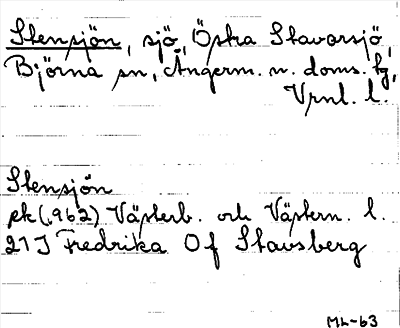 Stensjön, sjö, Östra Stavarsjö,
Björna sn, Ångerm. n. doms. tg,
Vrnl. l.
Stensjön
ek(.962) Västerb. och Västern. l.
21 J Fredrika Of Stavsberg
ML-63